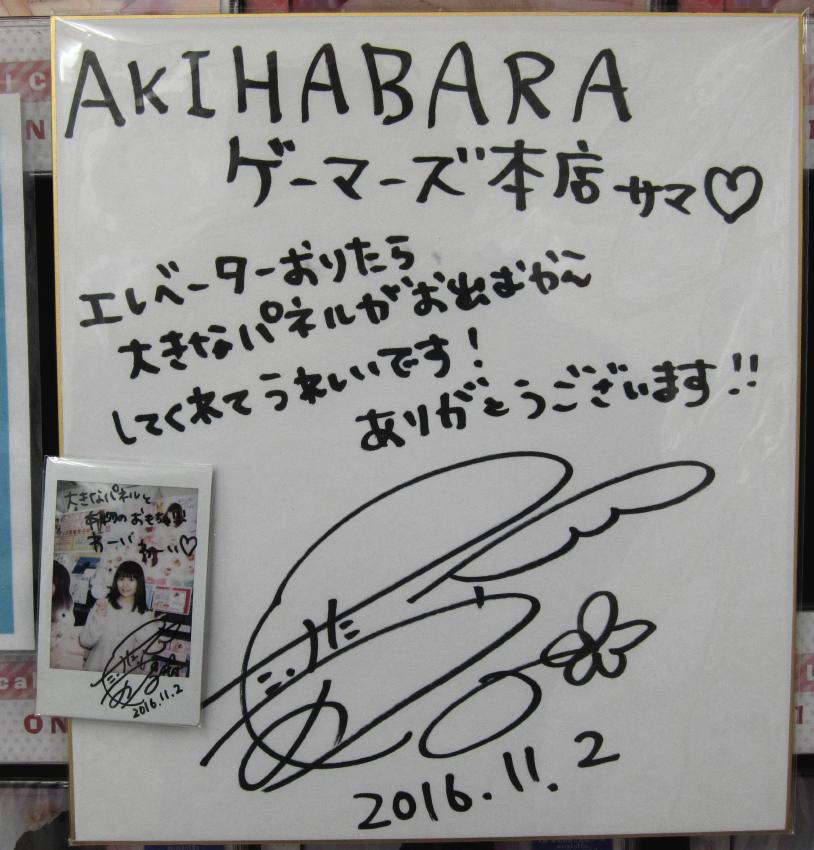 AKIHABARA
ゲーマーズ本店サマ♡
エレベーターおりたら
大きなパネルがお出むかえ
してくれてうれしいです！
ありがとうございます!!
にった
2016.11.2
大きなパネルと
本物のおもちゃ
わーい わーい♡
2016.11.2
ON
ON